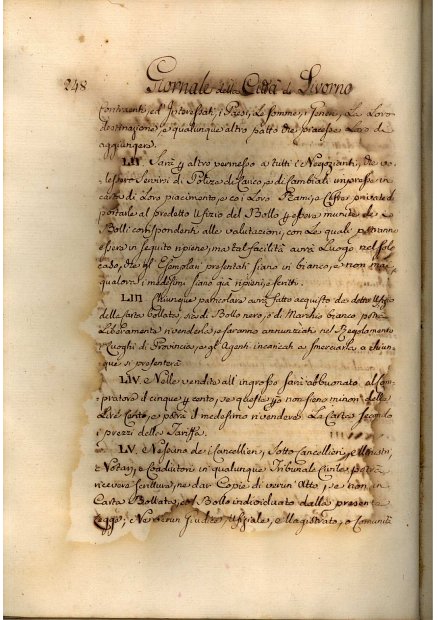 248 Giornale della Città di Livorno
Contraenti, ed Interessati, i Pesi, Le somme, i Generi, La Loro
destinazione, e qualunque altro patto che piacesse Loro di
aggiungere.
LII. Sarà p altro permesso a tutti i Negozianti, che vo-
lessero servirsi di Polize di Carico, e di Cambiali impresse in
carta di Loro piacimento, e co i Loro Rami, e Cifre private di
portarle al predetto Ufizio del Bollo p essere munite de
Bolli corrispondenti alle valutazioni, con Le quali potranno
essere in seguito ripiene, ma tal facilità avrà Luogo nel solo
caso, che gl'Esemplari presentati siano in bianco, e non mai
qualora i medesimi siano già ripieni, e scritti.
LIII. Chiunque particolare avrà fatto acquisto da detto Ufizio
della carta bollata, sia di Bollo nero, o di Marchio bianco potrà
Liberamente rivenderla, e saranno annunziati nel Regolamento
i Luoghi di Provincia, e gli Agenti incaricati a smerciarla a chiun-
que si presenterà
LIV. e Nelle vendite all'ingrosso sarà abbuonato al Com-
pratore il cinque p cento, se queste però non sieno minori delle
Lire Cento, e potrà il medesimo rivendere La Carta secondo
i prezzi della Tariffa.
LV. e Nessuno de i Cancellieri, Sotto Cancellieri, Ministri,
e Notari, e Coadiutori in qualunque Tribunale Civile potrà
ricevere Scritture, ne dar Copie di verun'Atto, se non in
Carta Bollata, col Bollo individuato dalla presente
Legge; e Nessun Giudice, Uffiziale, e Magistrato, o Comunità